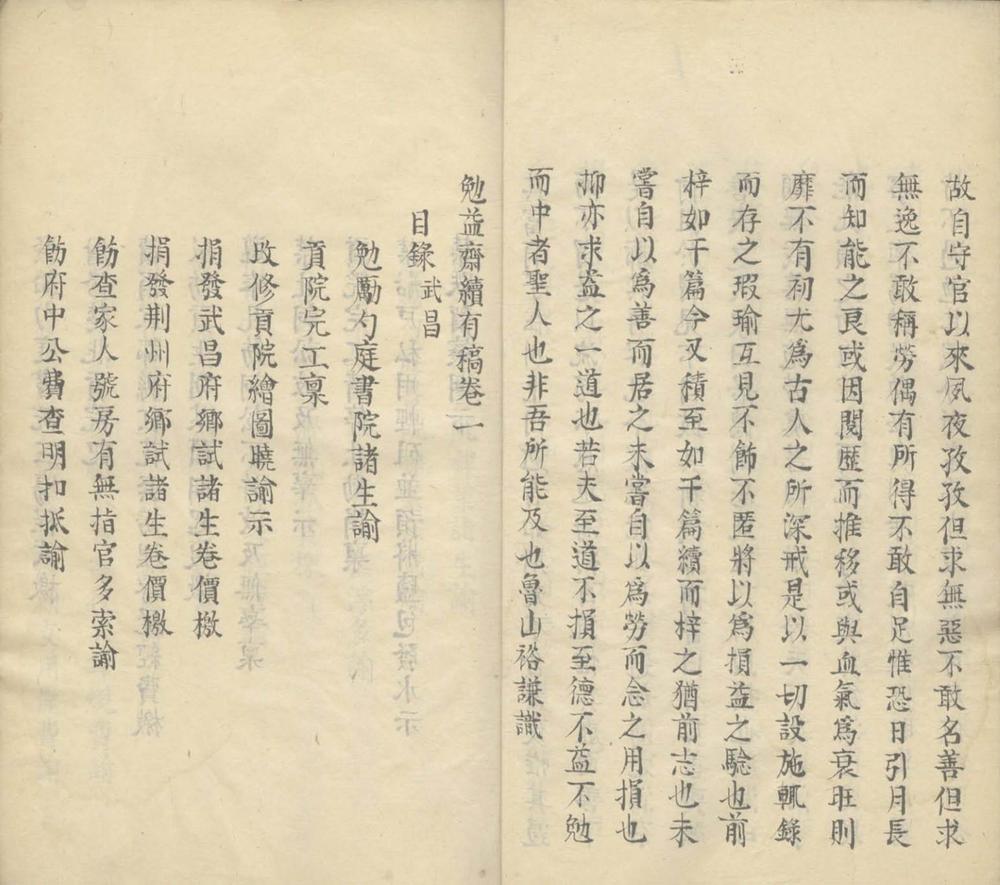 故自守官以來夙夜孜孜但求無惡不敢名善但求
無逸不敢稱勞偶有所得不敢自足惟恐日引月長
而知能之良或因閱歷而推移或與血氣爲衰旺則
靡不有初尤爲古人之所深戒是以一切設施輒錄
而存之瑕瑜互見不飾不匿將以爲損益之驗也前
梓如干篇今又積至如干篇續而梓之猶前志也未
嘗自以爲善而居之未嘗自以爲勞而念之用損也
抑亦求益之一道也若夫至道不損至德不益不勉
而中者聖人也非吾所能及也魯山裕謙識
勉益齋續有稿卷一
目錄 武昌
勉勵勺庭書院諸生諭
貢院完工稟
改修貢院繪圖曉諭示
捐發武昌府鄉試諸生卷價檄
捐發荆州府鄉試諸生卷價檄
飭查家人號房有無指官多索諭
飭府中公費查明扣抵諭